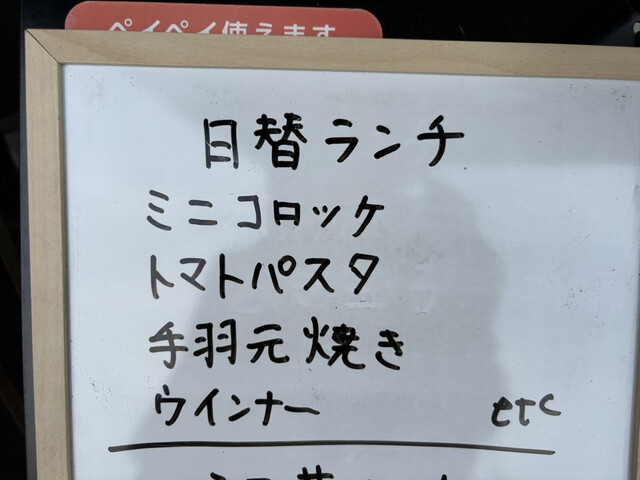 ペイペイ使えます
日替ランチ
ミニコロッケ
トマトパスタ
手羽元焼き
ウインナー etc